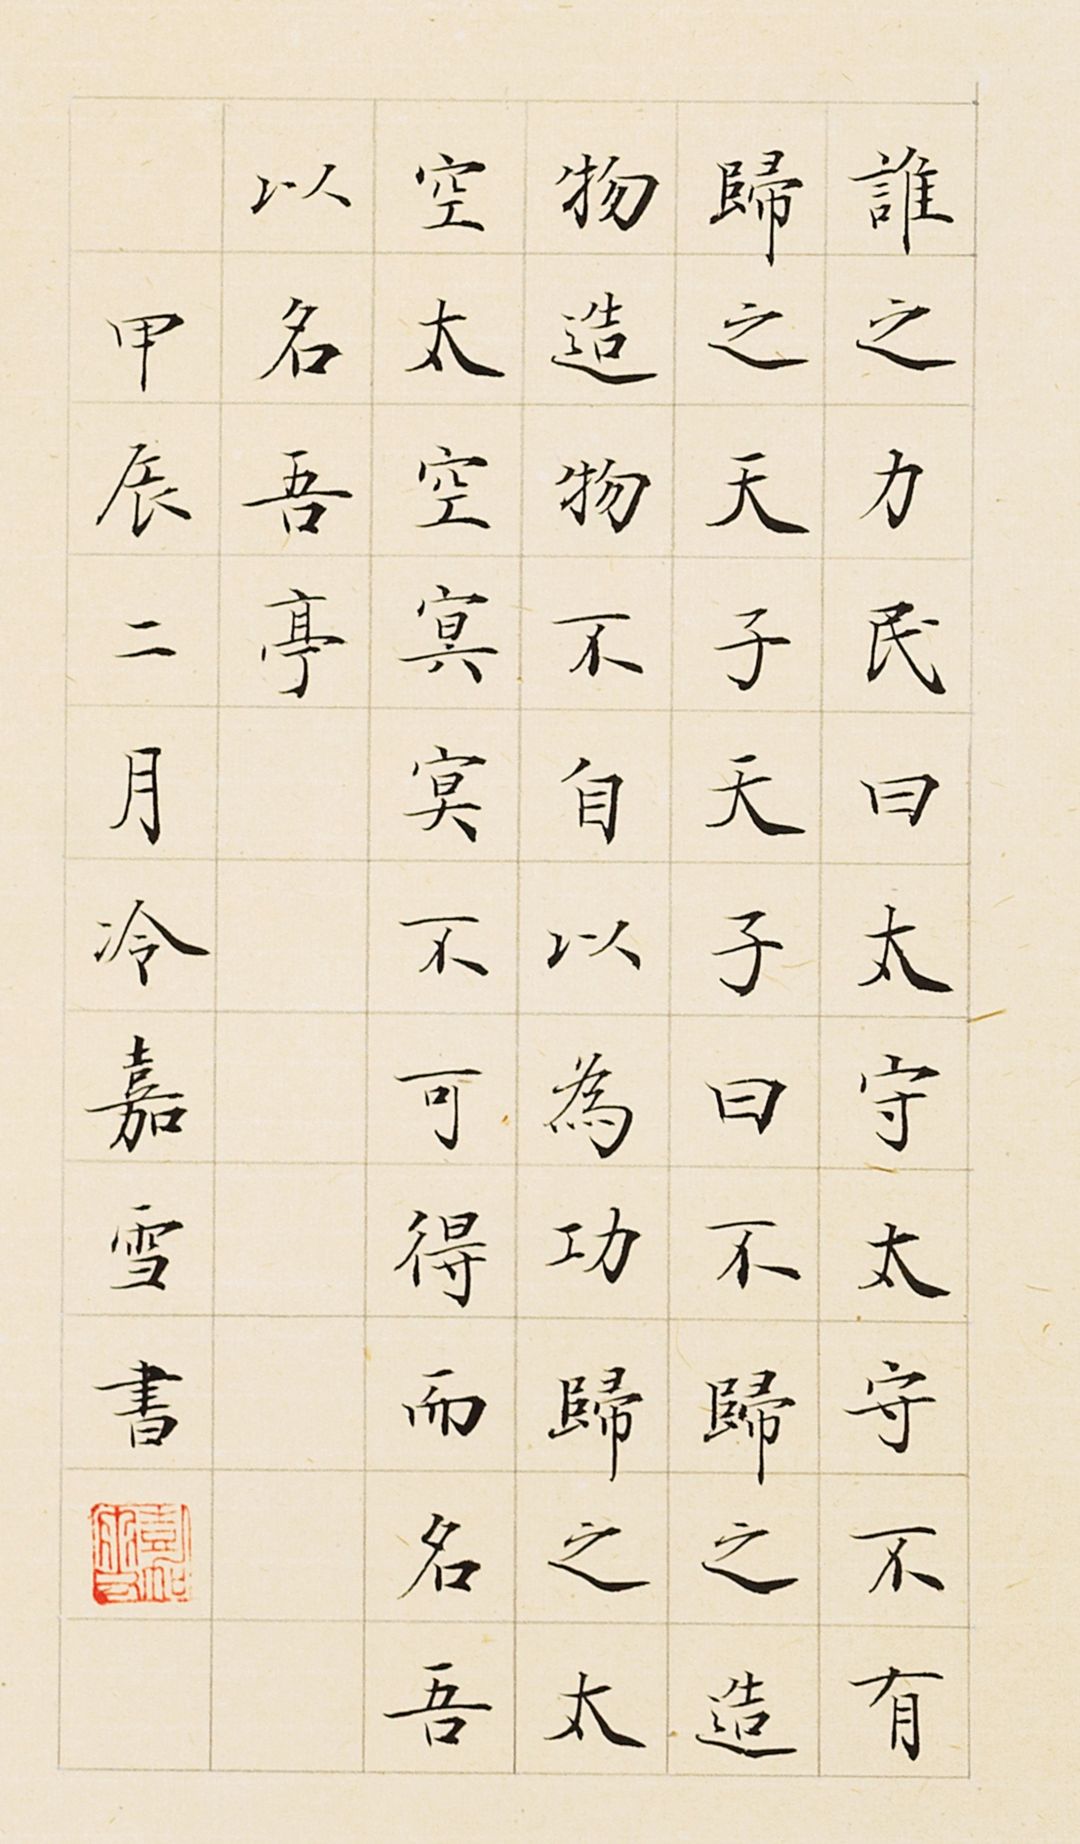 誰之力民曰太守太守不有
歸之天子天子曰不歸之造
物造物不自以為功歸之太
空太空冥冥不可得而名吾
以名吾亭
甲辰二月冷嘉雪書